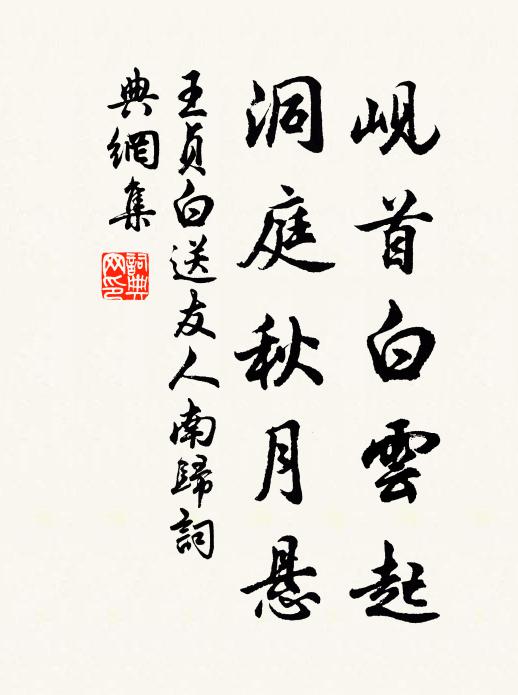 岘首白雲起
洞庭秋月悬
王贞白送友人南歸詞
典網集
詞典
网印